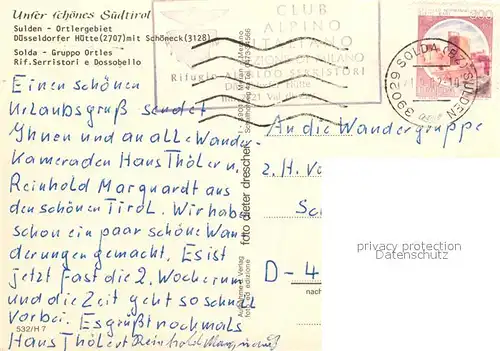 Unser schönes Südtirol
Sulden - Ortlergebiet
Düsseldorfer Hütte (2707) mit Schöneck (3128)
Solda - Gruppo Ortles
Rif. Serristori e Dossobello
CLUB
ALPINO
ITALIANO
SEZIONE DI MILANO
Rifugio SERRISTORI
39029 SOLDA (BZ) SULDEN
Einen schönen
Urlaubsgruß sendet
Ihnen und an alle Wander-
Kameraden Hans Thöler u.
Reinhold Marquardt aus
den schönen Tirol. Wir habe
schon ein paar schöne Wan
derungen gemacht. Es ist
jetzt fast die 2. Woche rum
und die Zeit geht so schnell
vorbei. Es grüßt nochmals
Hans Thöler Reinhold Marquardt
532/H 7
foto dieter drescher
Aufnahme u. Verlag
foto ed edizione
An die Wandergruppe
z. H. V
Sc
D-4
nach
privacy protection
Datenschutz